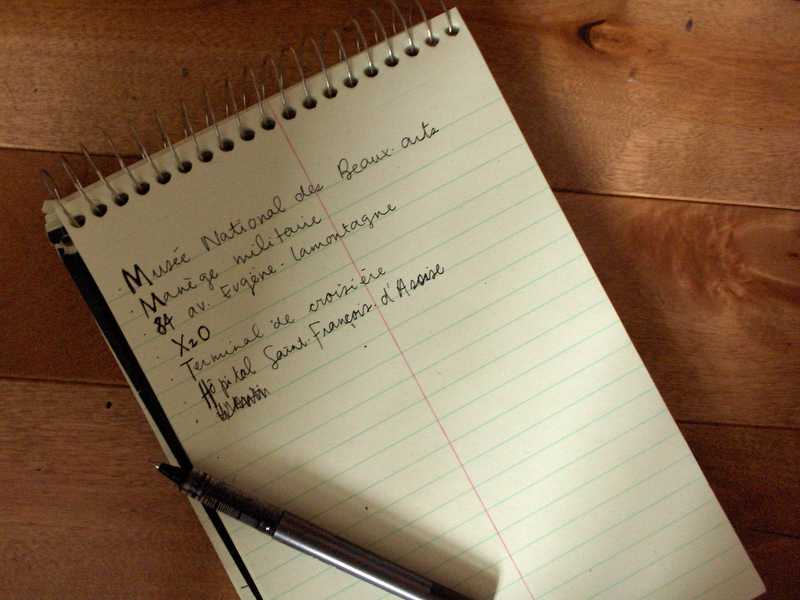 . Musée National des Beaux-arts
. Manège militaire
. 84 av. Eugène-Lamontagne
. X20
. Terminal de croisière
. Hôpital Saint-François-d'Assise